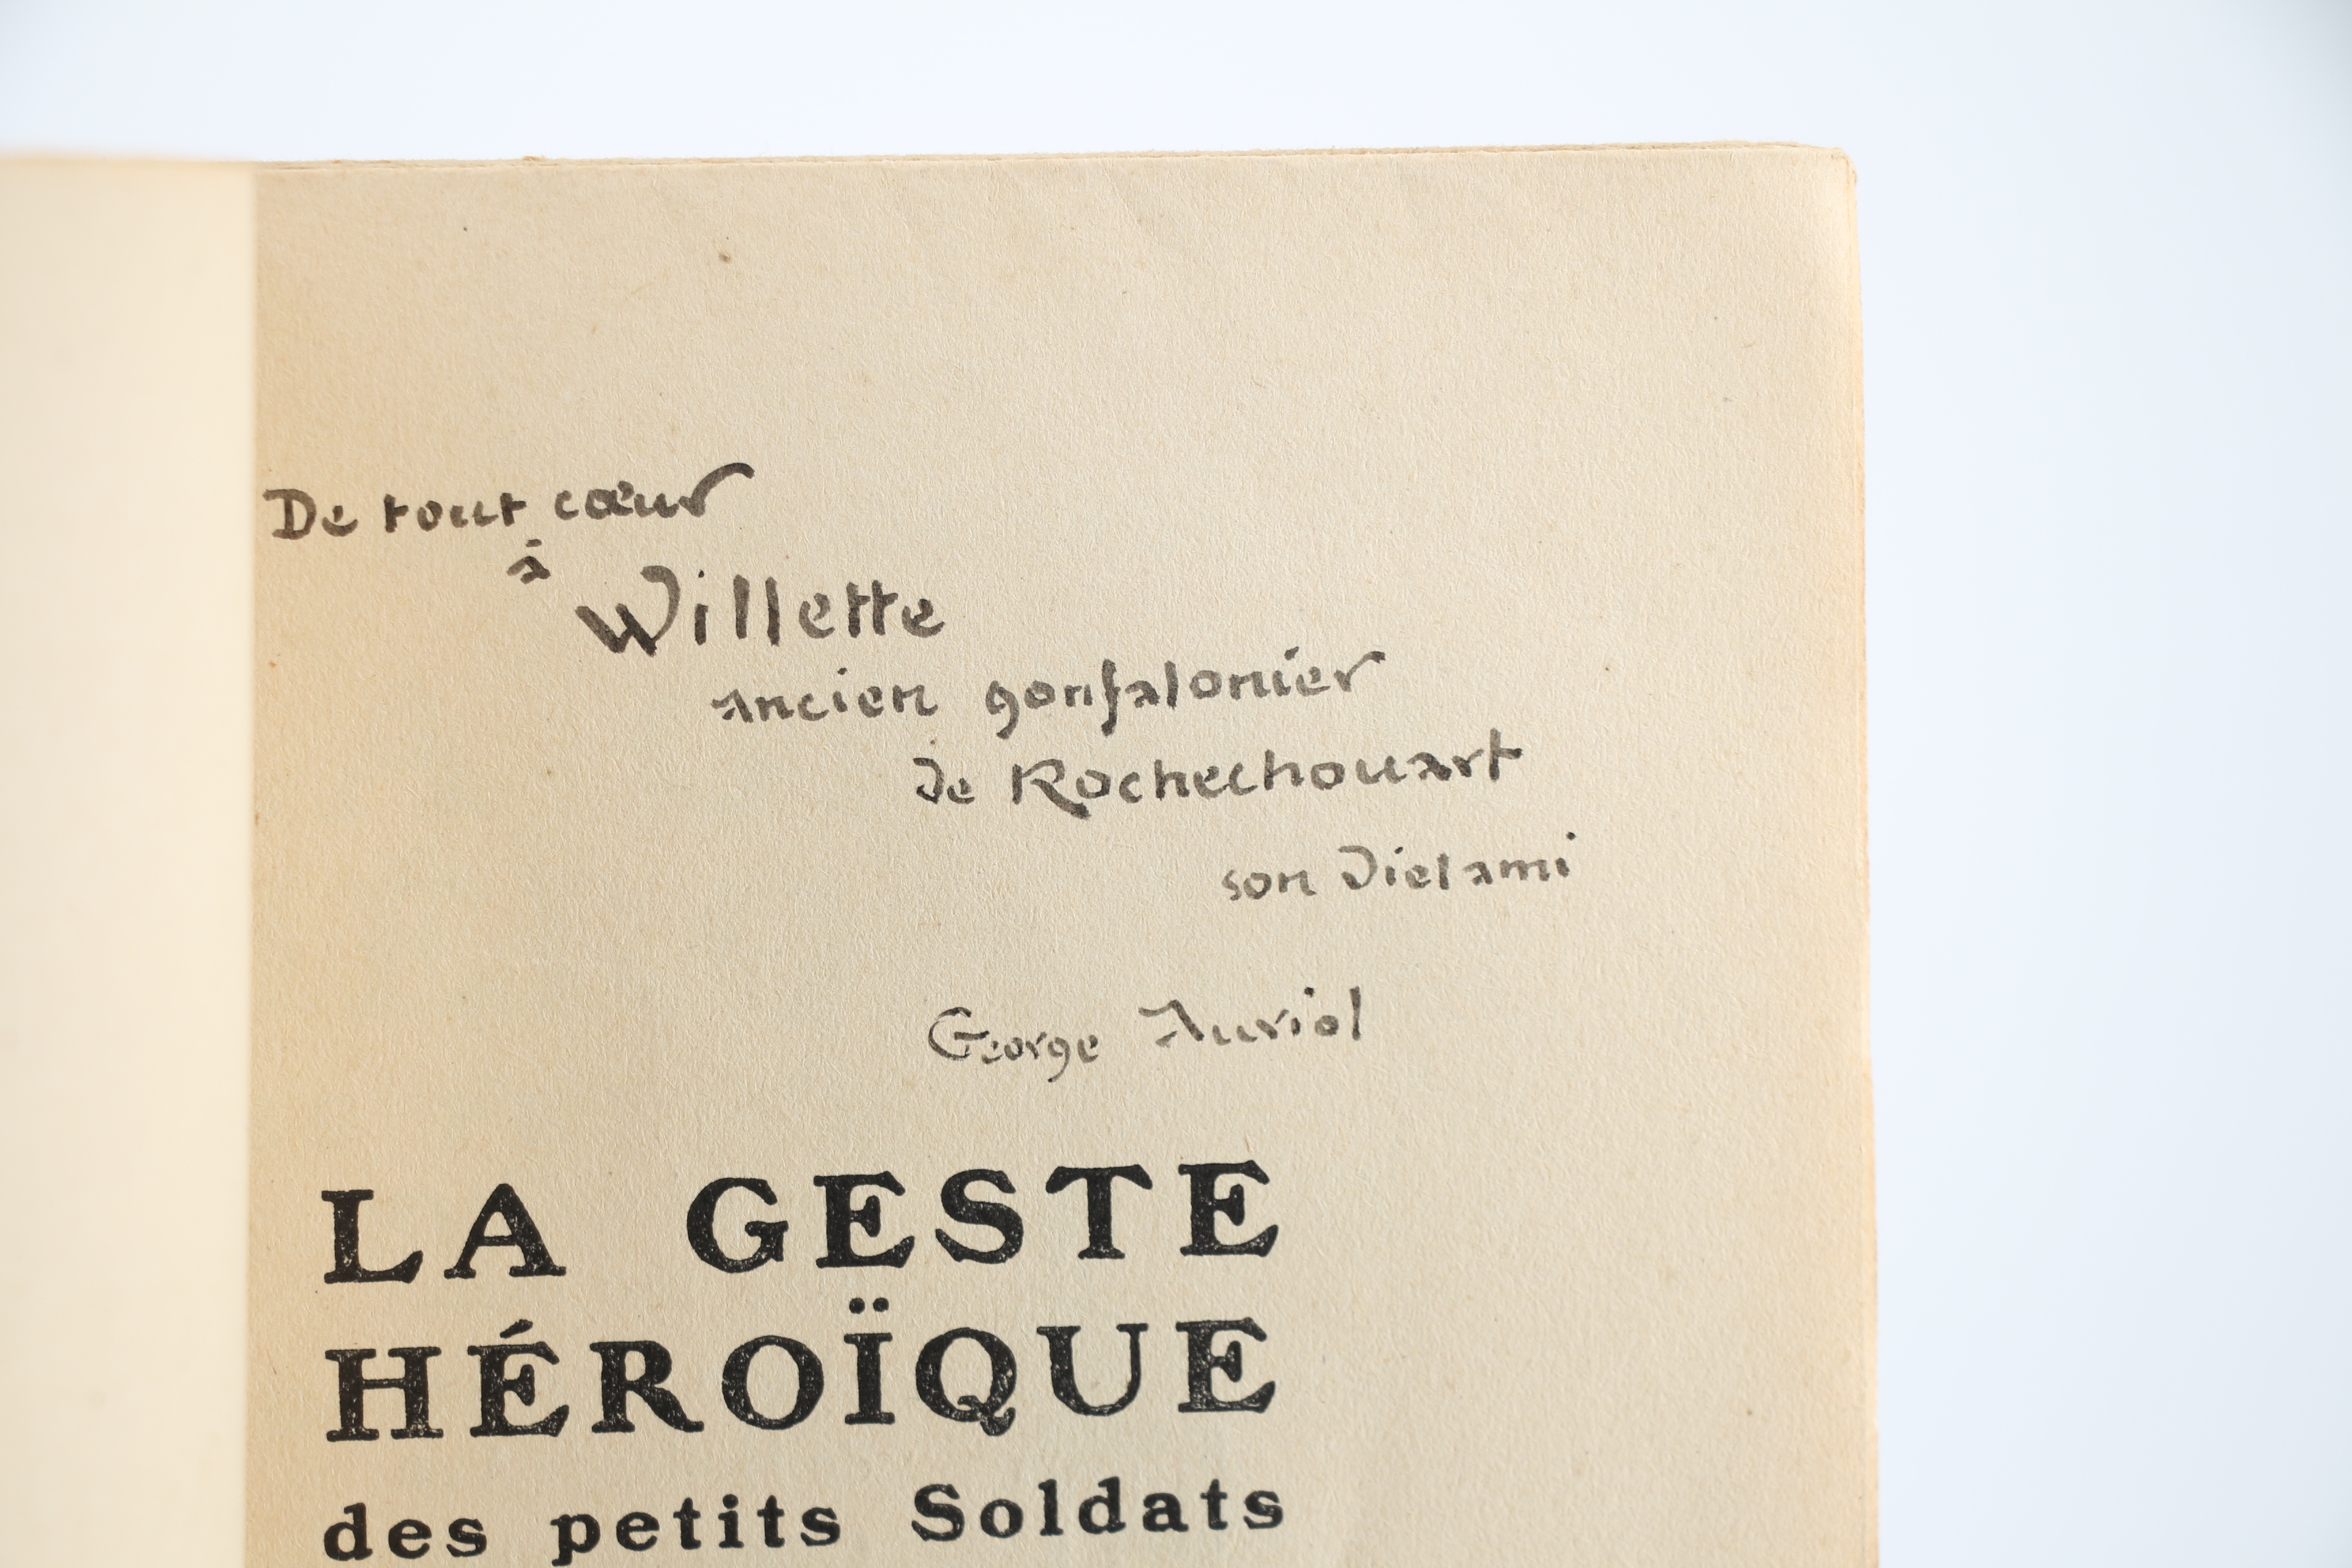 De tout cœur
à
Willette
Ancien gonfalonier
de Rochechouart
son Vielami
George Auriol
LA GESTE
HÉROÏQUE
des petits Soldats